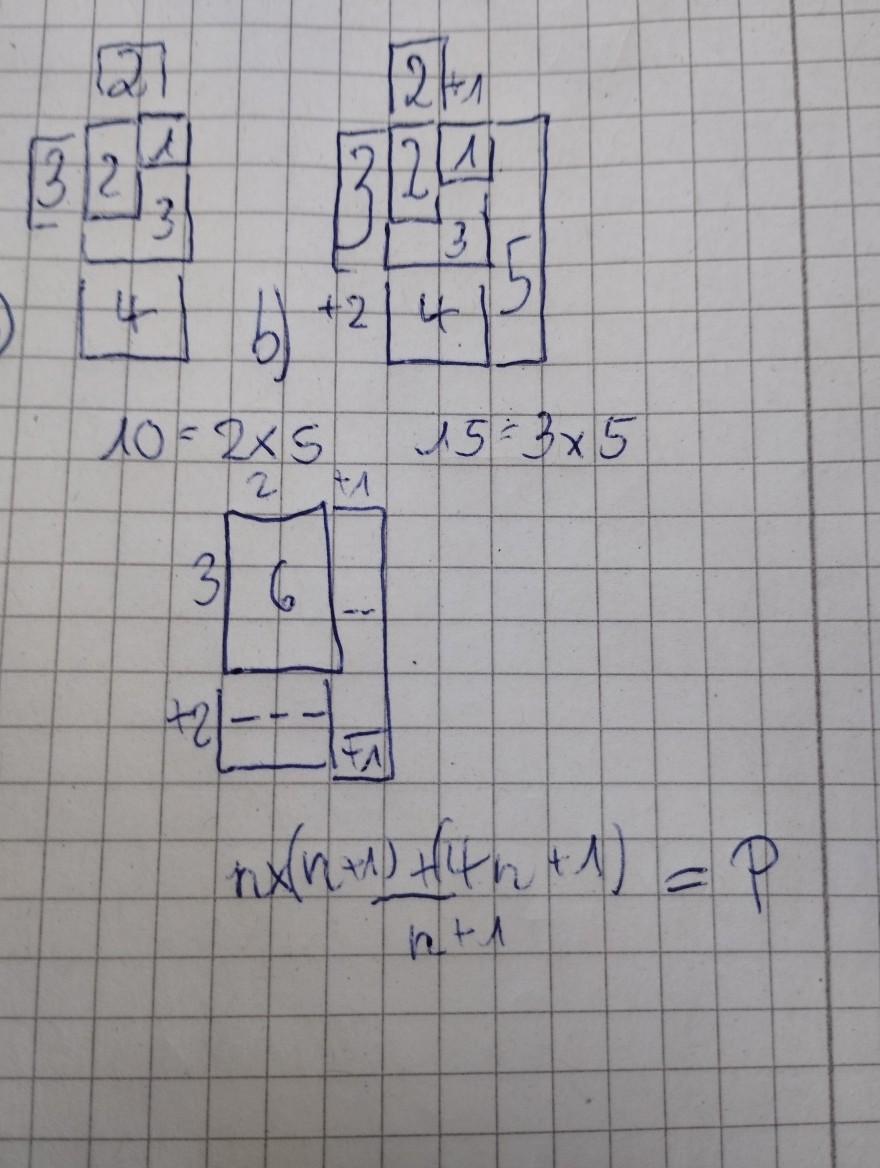 2 2+1
3 2 1 3 2 1
3 3 5
) 4 b) +2 4
10=2×5 15=3×5
2 +1
3 6 --
+2 --- +1
n×(n+1)+(4n+1) = P
n+1